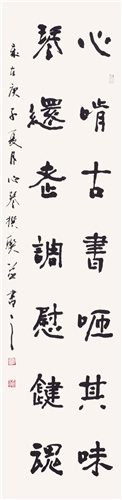 心啃古書咂其味
琴還老調慰鍵魂
歲在庚子夏月心琴撰聯並書之